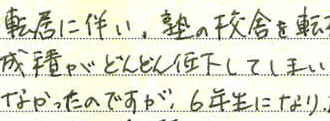 転居に伴い、塾の校舎を転
成積がどんどん低下してしまい
なかったのですが、6年生になり、